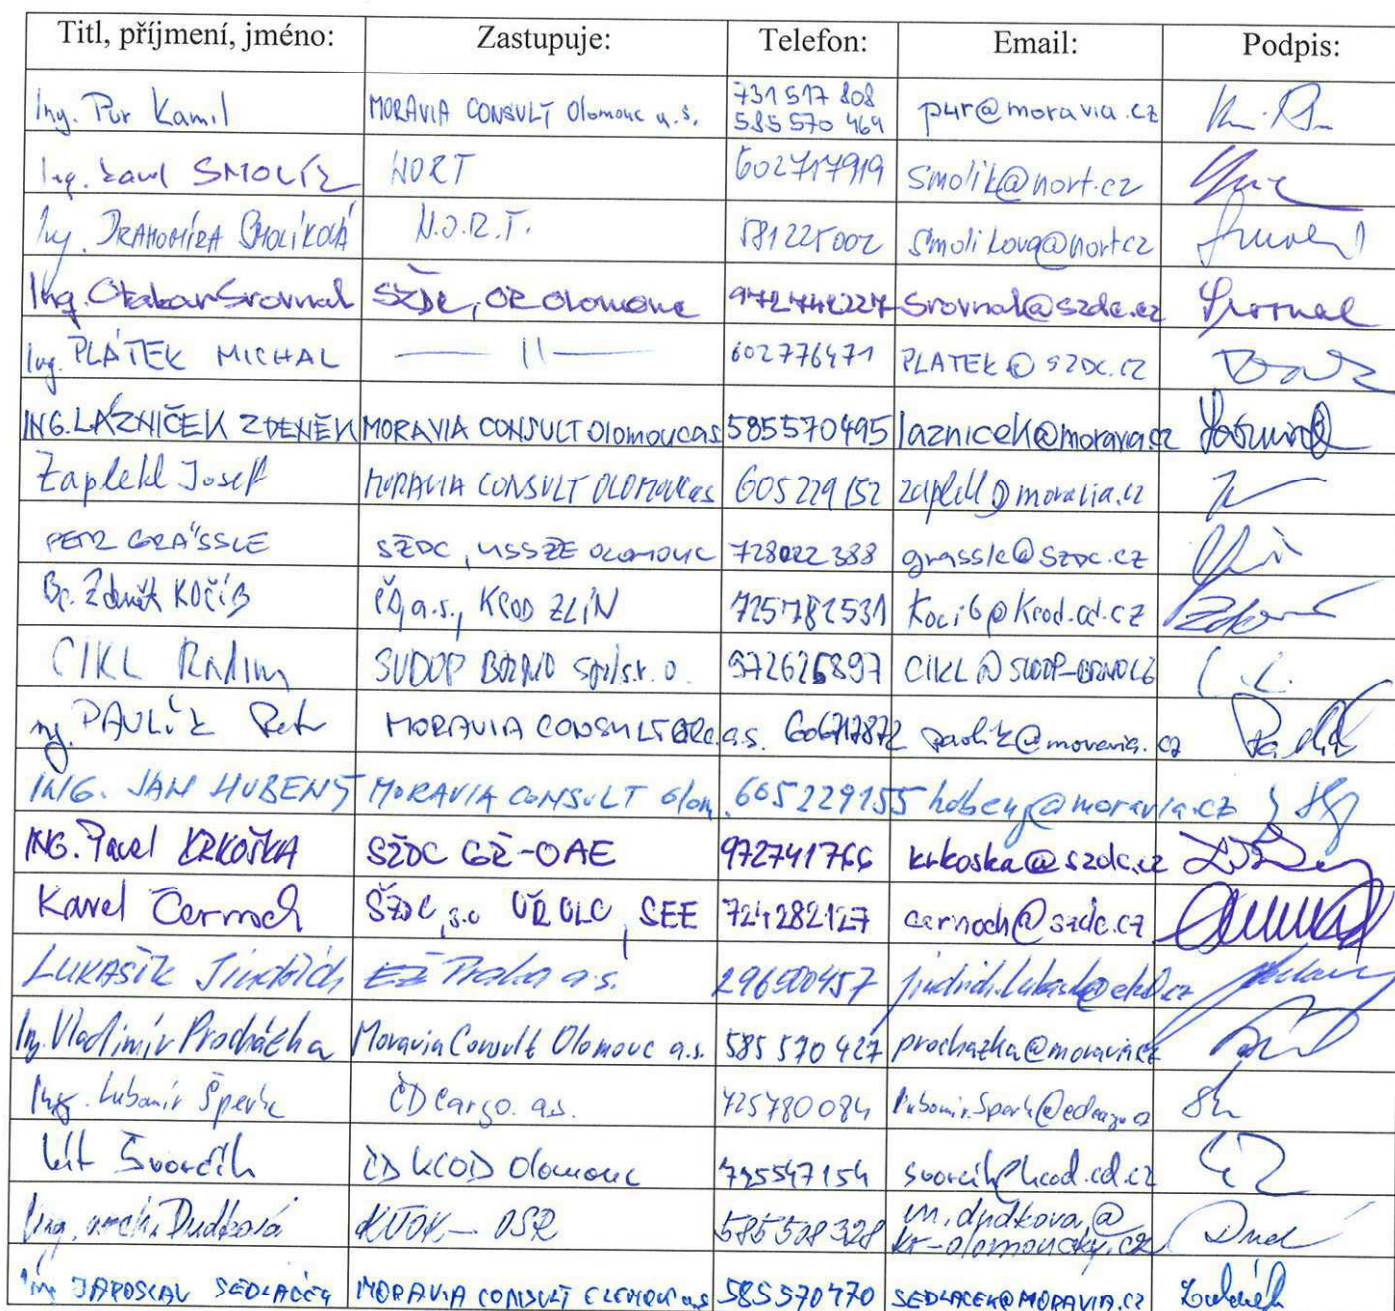 Titl, příjmení, jméno: Zastupuje: Telefon: Email: Podpis:
Ing. Pur Kamil MORAVIA CONSULT Olomouc a.s. 731 517 808 585 570 469 pur@moravia.cz
Ing. Karel SMOLÍK NORT 602717919 smolik@nort.cz
Ing. DRAHOMÍRA SMOLÍKOVÁ N.O.R.T. 581225002 smolikova@nort.cz
Ing. Otakar Srovnal SŽDC, OŘ Olomouc 972742227 Srovnal@szdc.cz Srovnal
Ing. PLÁTEK MICHAL — 11 — 602776471 PLATEK@SZDC.CZ
ING. LÁZNIČEK ZDENĚK MORAVIA CONSULT Olomouc as 585570495 laznicek@moravia.cz
Zaplekl Josef MORAVIA CONSULT OLOMOUC as 605 229 152 zaplekl@moravia.cz
PETR GRÄSSLE SŽDC, USSZE OLOMOUC 728022388 grassle@szdc.cz
Bc. Zdeněk KOČÍB ČD, a.s., KCOD ZLÍN 725782531 Kocib@Kcod.cd.cz
CIKL Radim SUDOP BRNO spol s.r.o. 972625897 CIKL@SUDOP-BRNO.CZ
Ing. PAVLÍK Petr MORAVIA CONSULT Olc. a.s. 606717872 pavlik@moravia.cz
ING. JAN HUBENÝ MORAVIA CONSULT Olom. 605229155 hubeny@moravia.cz
ING. Pavel KRKOŠKA SŽDC GŘ-OAE 972741766 krkoska@szdc.cz
Karel Černoch SŽDC, s.o OŘ OLC, SEE 724282127 cernoch@szdc.cz
LUKAŠÍK Jindřich EŽ Praha a.s. 296500457
Ing. Vladimír Procházka Moravia Consult Olomouc a.s. 585 570 427 prochazka@moravia.cz
Ing. Lubomír Šperk ČD Cargo. a.s. 725780084 Lubomir.Sperk@cdcargo.cz
Vít Švorčík ČD KCOD Olomouc 725547154 svorcik@kcod.cd.cz
Ing. arch. Dudková KÚOK – OSR 585 508 328 m.dudkova@kr-olomoucky.cz
Ing JAROSLAV SEDLÁČEK MORAVIA CONSULT OLOMOUC as 585570470 SEDLACEK@MORAVIA.CZ Sedláček